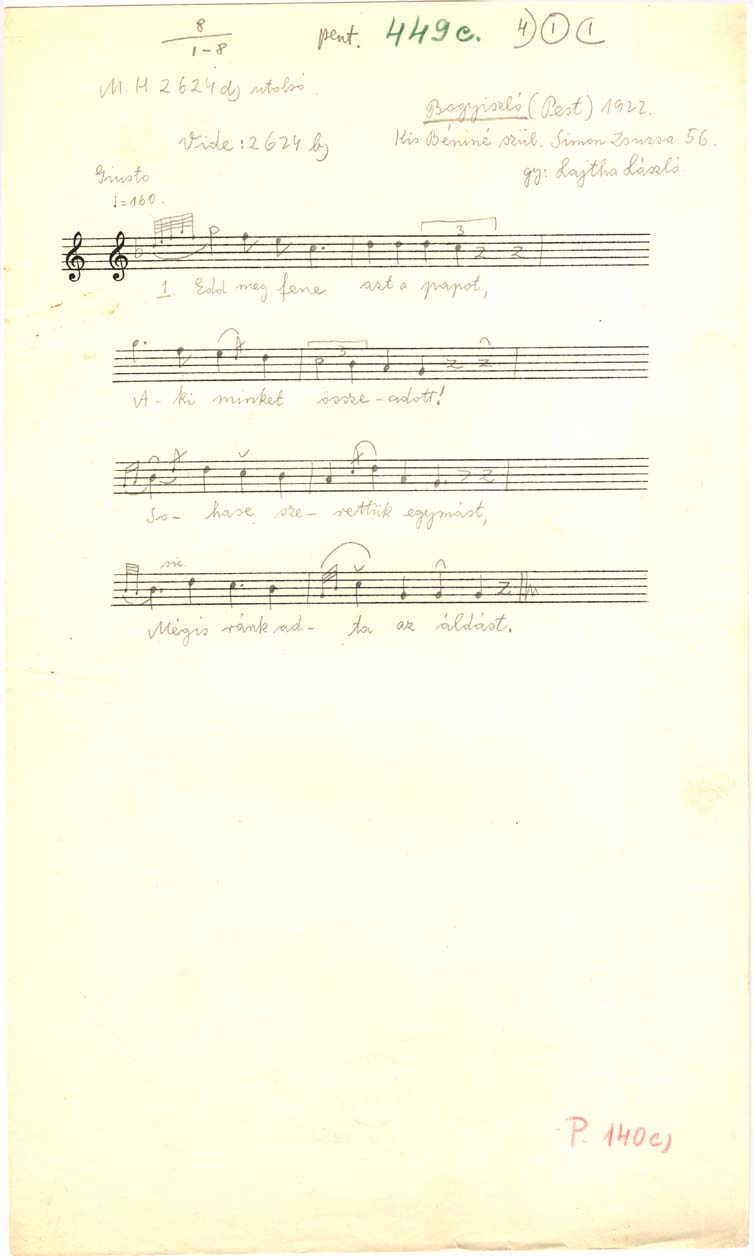 8
1-8
pent. 449c. 4) 1 (1
M. H. 2624 d) utolsó.
Bogyiszló (Pest) 1922.
Vide: 2624 b)
Kis Béniné szül. Simon Zsuzsa 56.
gy: Lajtha László
Giusto
♩=160.
3
1. Edd meg fene azt a papot,
3
A-ki minket össze-adott!
So-hase sze-rettük egymást,
sic
Mégis ránk ad-ta az áldást.
P. 140c)